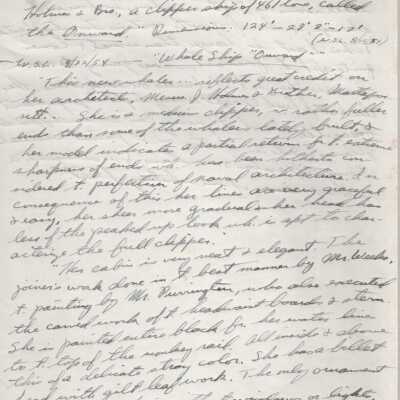 Holmes & Bro., a clipper ship of 461 tons, called
the Onward" Dimensions. 128' - 28' 8" - 18'
W.S.L. 8/24/54 "Whale Ship "Onward"
"This new whaler ... reflects great credit on
her architect, Messrs J. Holmes & Brother, Mattapoi-
sett. She is a medium clipper, rather fuller
ends than some of the whalers lately built, &
her model indicates a partial return fr. t. extreme
sharpness of ends wh. has been hitherto con
sidered t. perfection of naval architecture. In
consequence of this her lines are very graceful
& easy, her sheer more gradual & her head has
less of the peaked up look wh. is apt to char-
acterize the full clipper.
"Her cabin is very neat & elegant. The
joiner's work done in t. best manner by Mr. Weeks,
t. painting by Mr. Purrington, who also executed
the carved work of t. headboards & stern.
She is painted entire black fr. her water line
to t. top of the monkey rail. All inside & above
this of a delicate straw color. She has a billet
head with gilt leaf work. The only ornament